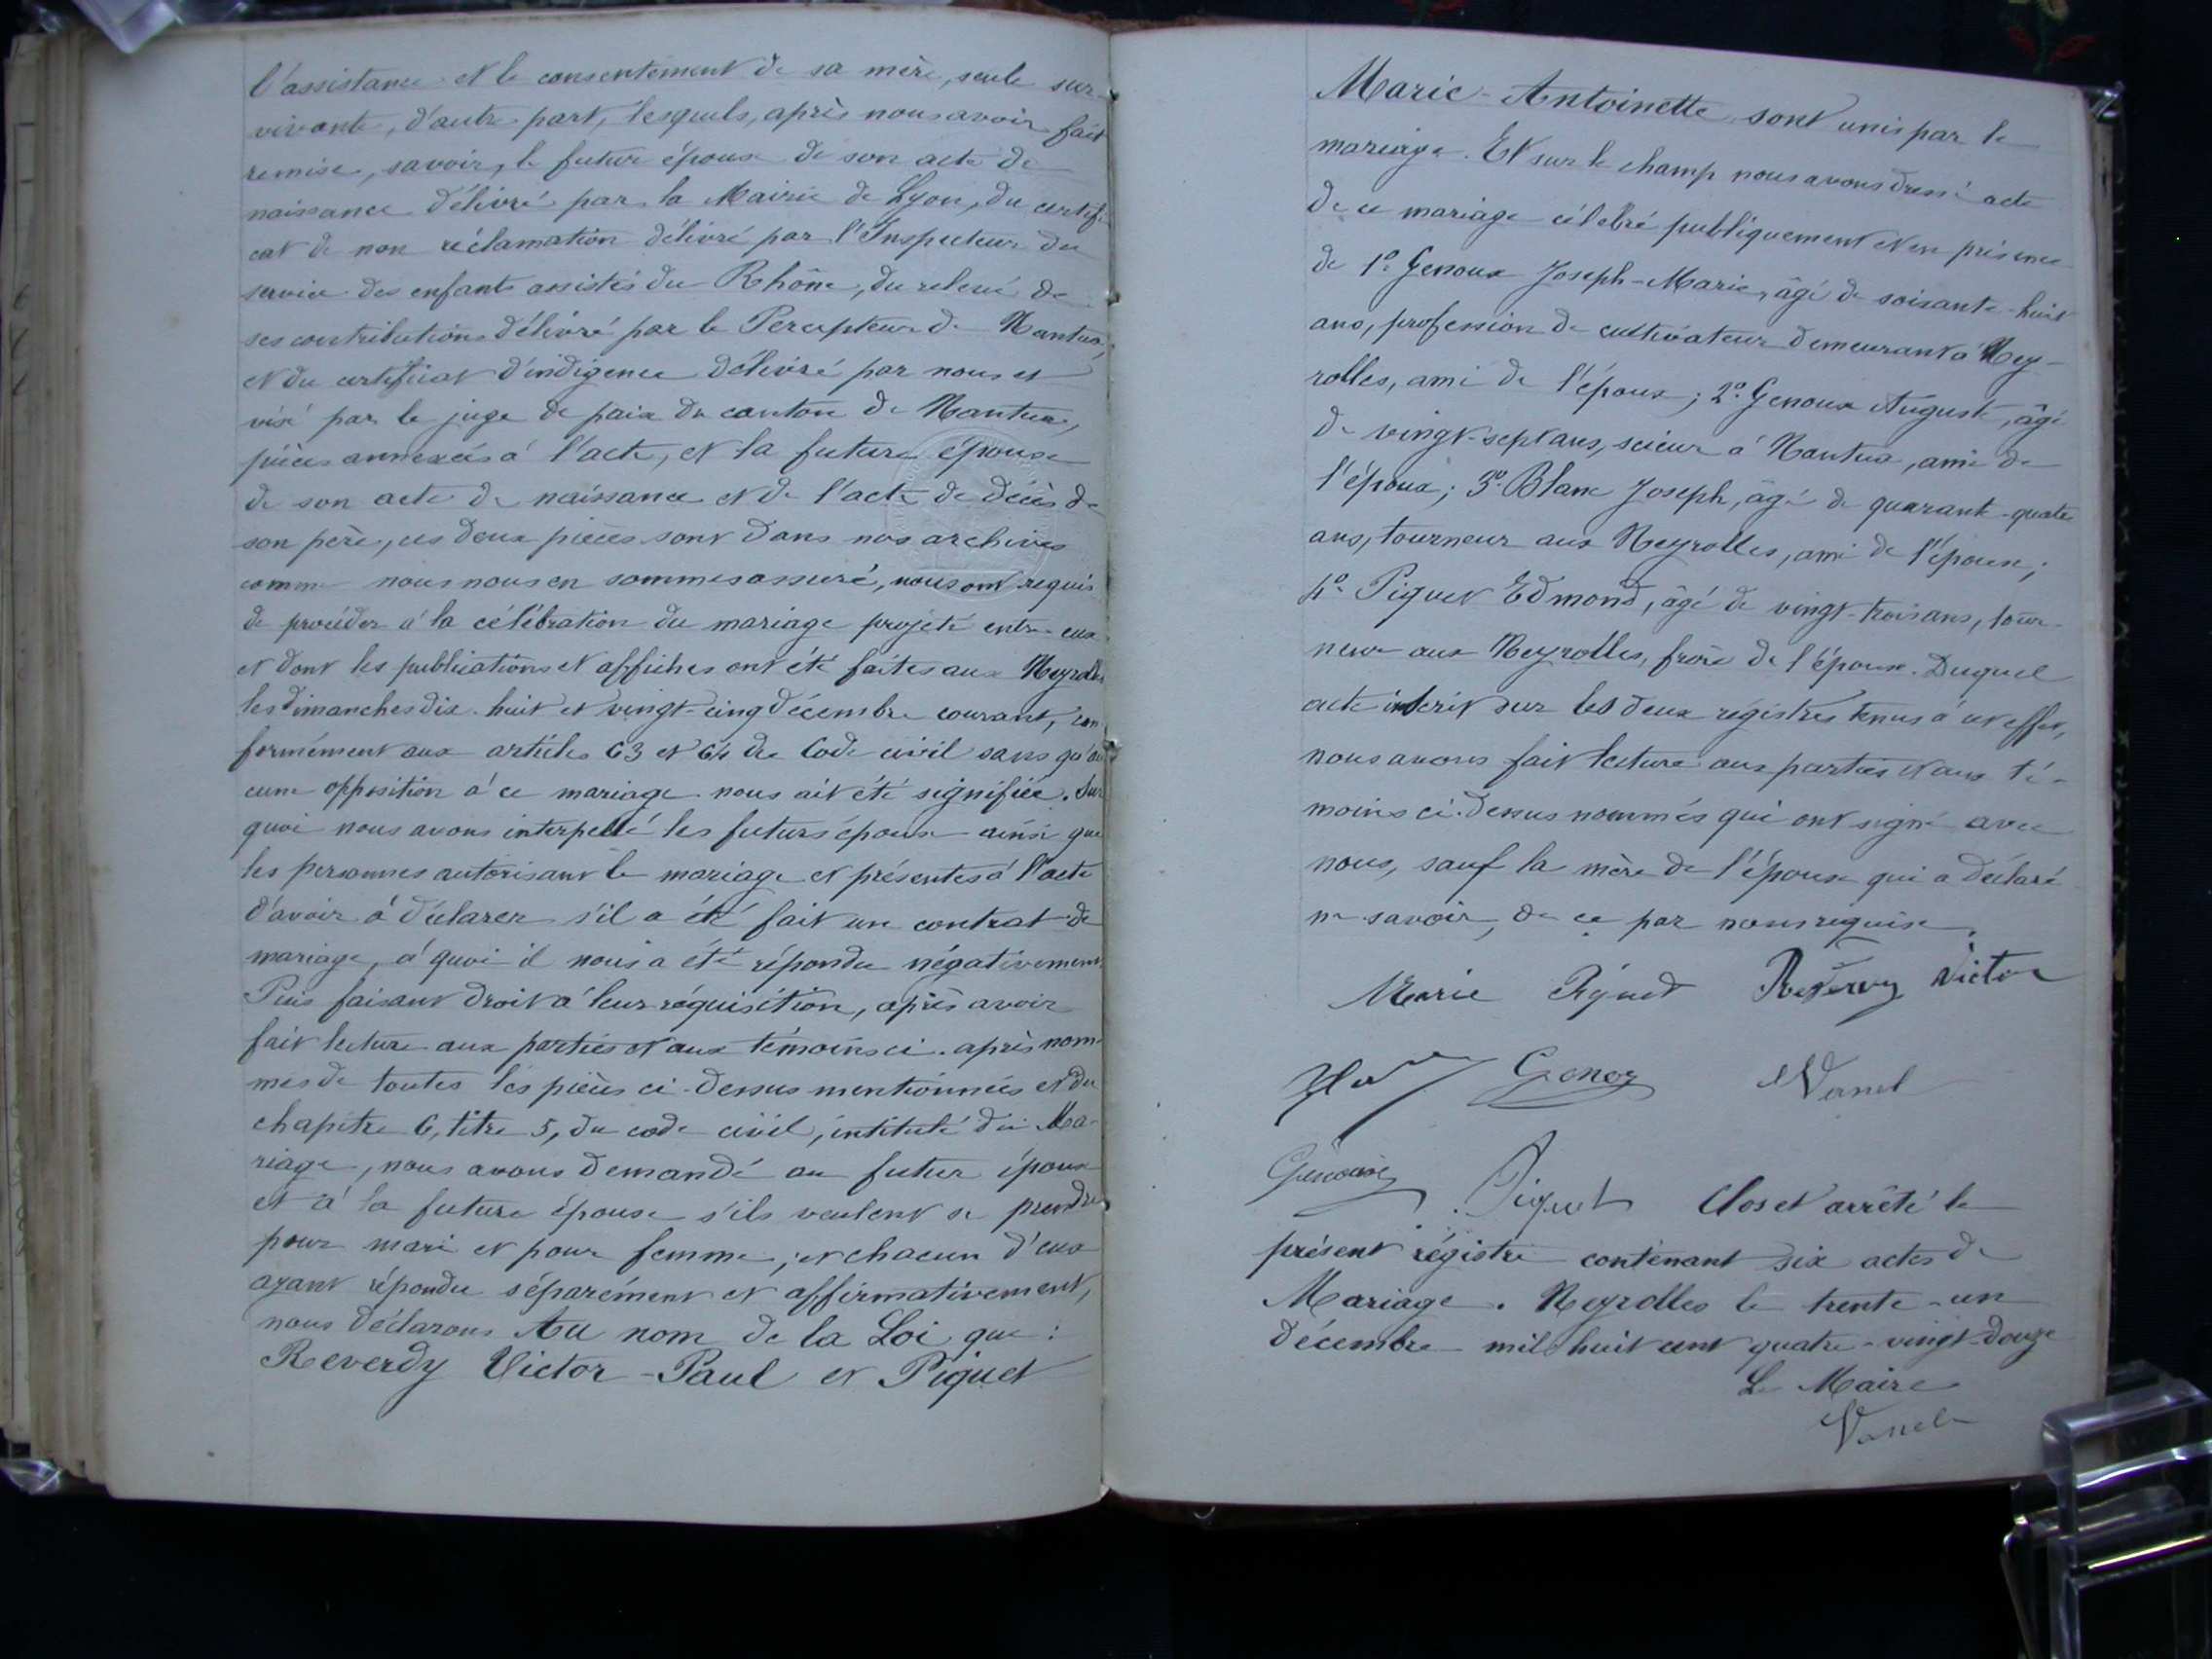 l'assistance et le consentement de sa mère, seule sur-
vivante, d'autre part, lesquels, après nous avoir fait
remise, savoir, le futur époux de son acte de
naissance délivré par la Mairie de Lyon, du certifi-
cat de non réclamation délivré par l'Inspecteur du
service des enfants assistés du Rhône, du relevé de
ses contributions délivré par le Percepteur de Nantua,
et du certificat d'indigence délivré par nous et
visé par le juge de paix du canton de Nantua,
pièces annexées à l'acte, et la future épouse
de son acte de naissance et de l'acte de décès de
son père, ces deux pièces sont dans nos archives
comme nous nous en sommes assuré, nous ont requis
de procéder à la célébration du mariage projeté entre eux
et dont les publications et affiches ont été faites aux Neyrolles
les dimanches dix-huit et vingt-cinq décembre courant, con-
formément aux articles 63 et 64 du Code civil sans qu'au-
cune opposition à ce mariage nous ait été signifiée. Sur
quoi nous avons interpellé les futurs époux ainsi que
les personnes autorisant le mariage et présentes à l'acte
d'avoir à déclarer s'il a été fait un contrat de
mariage, à quoi il nous a été répondu négativement
Puis faisant droit à leur réquisition, après avoir
fait lecture aux parties et aux témoins ci-après nom-
més de toutes les pièces ci-dessus mentionnées et du
chapitre 6, titre 5, du code civil, intitulé du Ma-
riage, nous avons demandé au futur époux
et à la future épouse s'ils veulent se prendre
pour mari et pour femme; et chacun d'eux
ayant répondu séparément et affirmativement,
nous déclarons Au nom de la Loi que:
Reverdy Victor-Paul et Piguet
Marie-Antoinette sont unis par le
mariage. Et sur le champ nous avons dressé acte
de ce mariage célébré publiquement et en présence
de 1º Genoux Joseph-Marie, âgé de soixante-huit
ans, profession de cultivateur demeurant à Ney-
rolles, ami de l'époux; 2º Genoux Auguste, âgé
de vingt-sept ans, scieur à Nantua, ami de
l'époux; 3º Blanc Joseph, âgé de quarante-quatre
ans, tourneur aux Neyrolles, ami de l'époux;
4º Piguet Edmond, âgé de vingt-trois ans, tour-
neur aux Neyrolles, frère de l'épouse. Duquel
acte inscrit sur les deux registres tenus à cet effet,
nous avons fait lecture aux parties et aux té-
moins ci-dessus nommés qui ont signé avec
nous, sauf la mère de l'épouse qui a déclaré
ne savoir, de ce par nous requise.
Marie Piguet Reverdy Victor
Genoux Vanel
Genoux Piguet Clos et arrêté le
présent régistre contenant six actes de
Mariage. Neyrolles le trente-un
décembre mil huit cent quatre-vingt-douze
Le Maire
Vanel